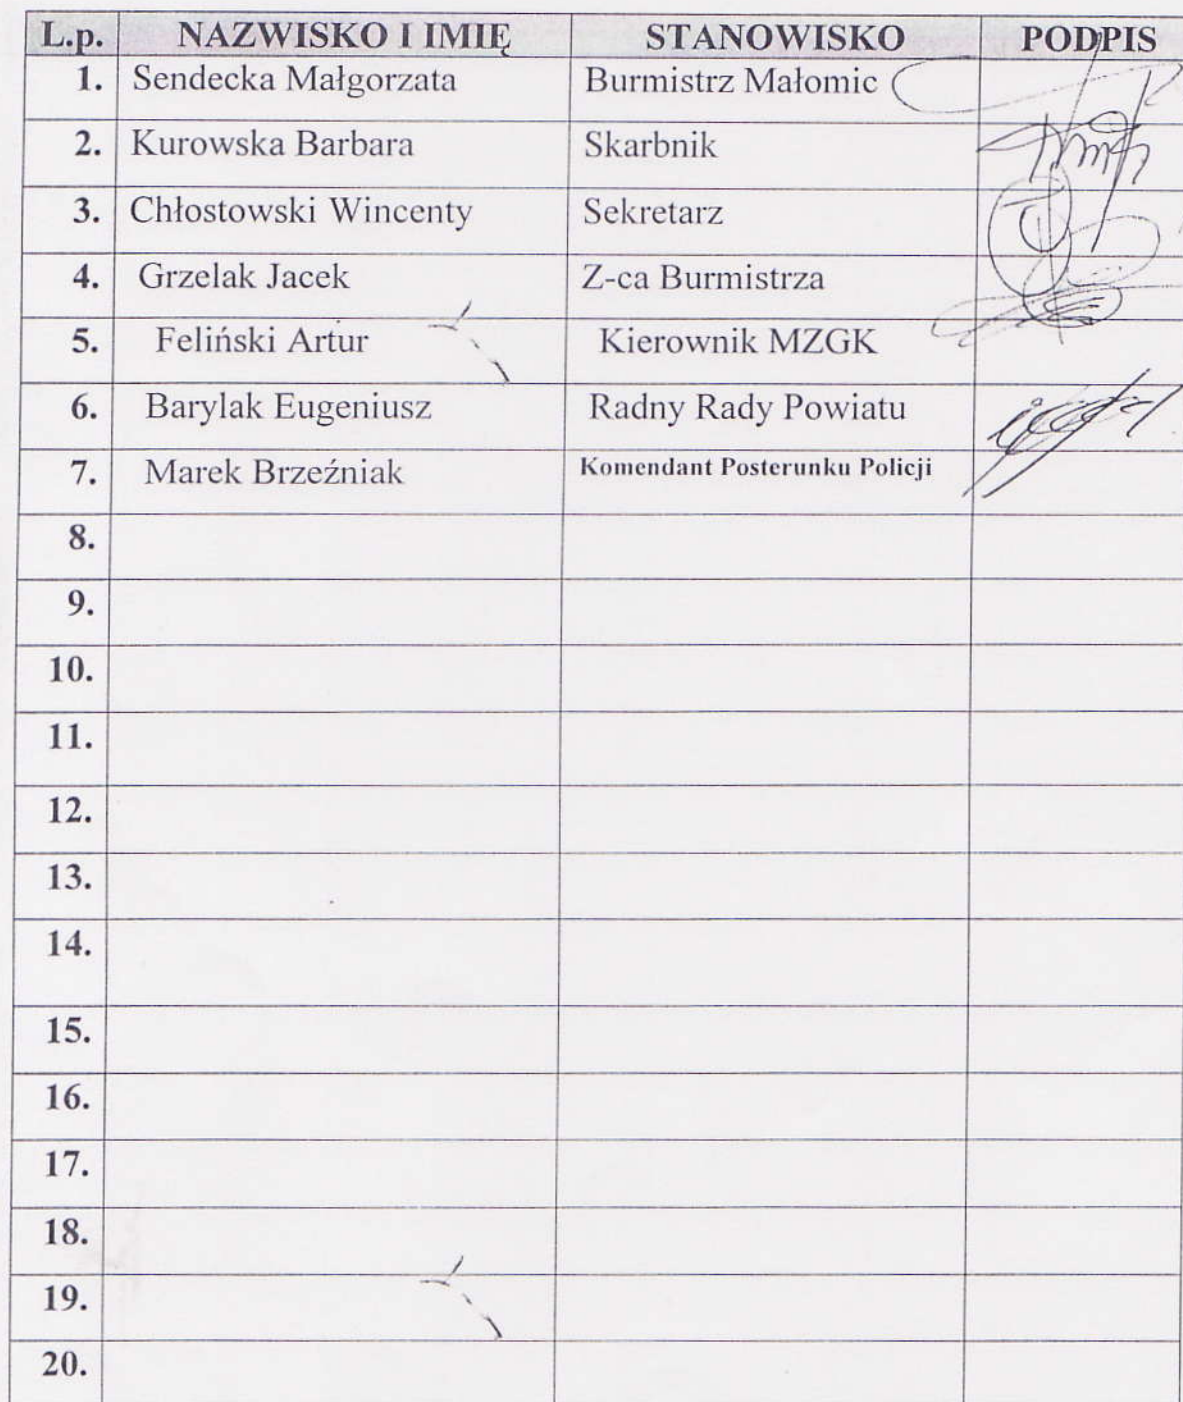 L.p. NAZWISKO I IMIĘ STANOWISKO PODPIS
1. Sendecka Małgorzata Burmistrz Małomic
2. Kurowska Barbara Skarbnik
3. Chłostowski Wincenty Sekretarz
4. Grzelak Jacek Z-ca Burmistrza
5. Feliński Artur Kierownik MZGK
6. Barylak Eugeniusz Radny Rady Powiatu
7. Marek Brzeźniak Komendant Posterunku Policji
8.
9.
10.
11.
12.
13.
14.
15.
16.
17.
18.
19.
20.